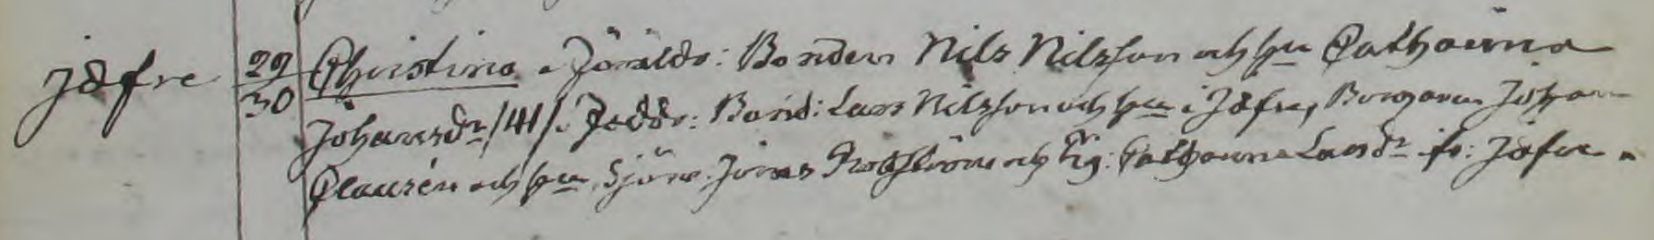 Jäfre 29/30 Christina. Föräldr: Bonden Nils Nilsson och hu Catharina
Johansdr /41/. Faddr: Bond: Lars Nilsson och hu i Jäfre, Borgaren Johan
Clausén och hu, Sjöm. Jonas och Pig: Catharina Larsdr fr: Jäfre.